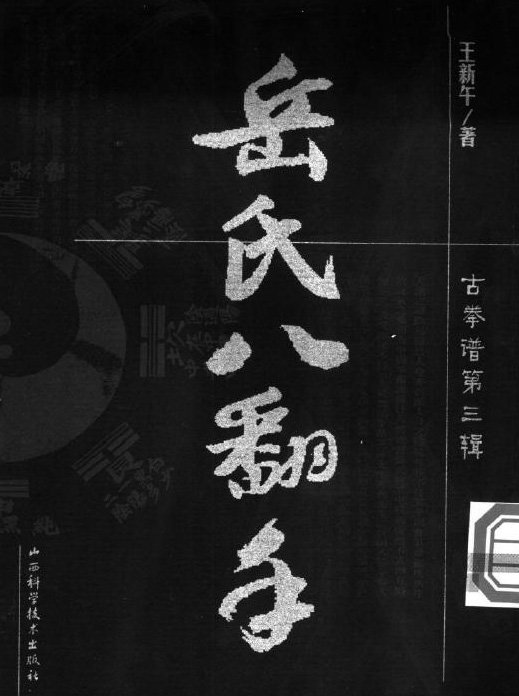 王新午/著
古拳谱第三辑
岳氏八翻手
山西科学技术出版社